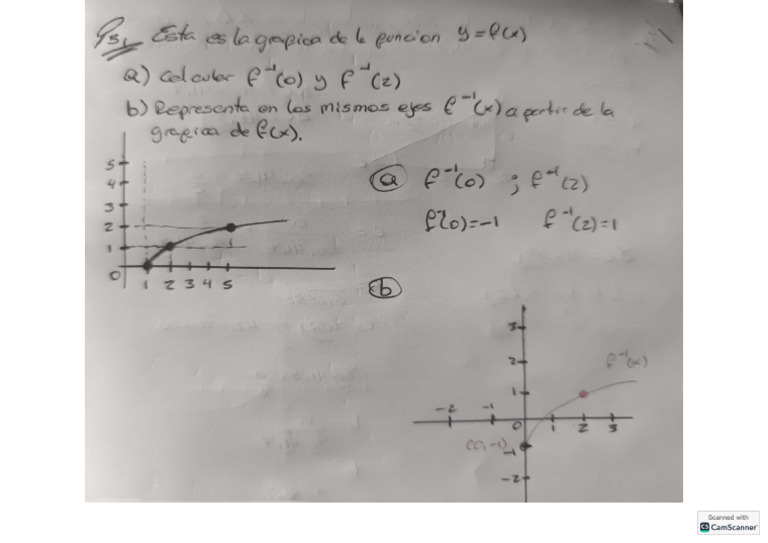 Esta es la grafica de la funcion y=f(x)
a) Calcular f⁻¹(0) y f⁻¹(2)
b) Representa en los mismos ejes f⁻¹(x) a partir de la
grafica de f(x).
5
4
3
2
1
0 1 2 3 4 5
a f⁻¹(0) ; f⁻¹(2)
f⁻¹(0)=-1 f⁻¹(2)=1
b
3
2
f⁻¹(x)
1
-2 -1 0 1 2 3
(0,-1) -1
-2
Scanned with
CamScanner